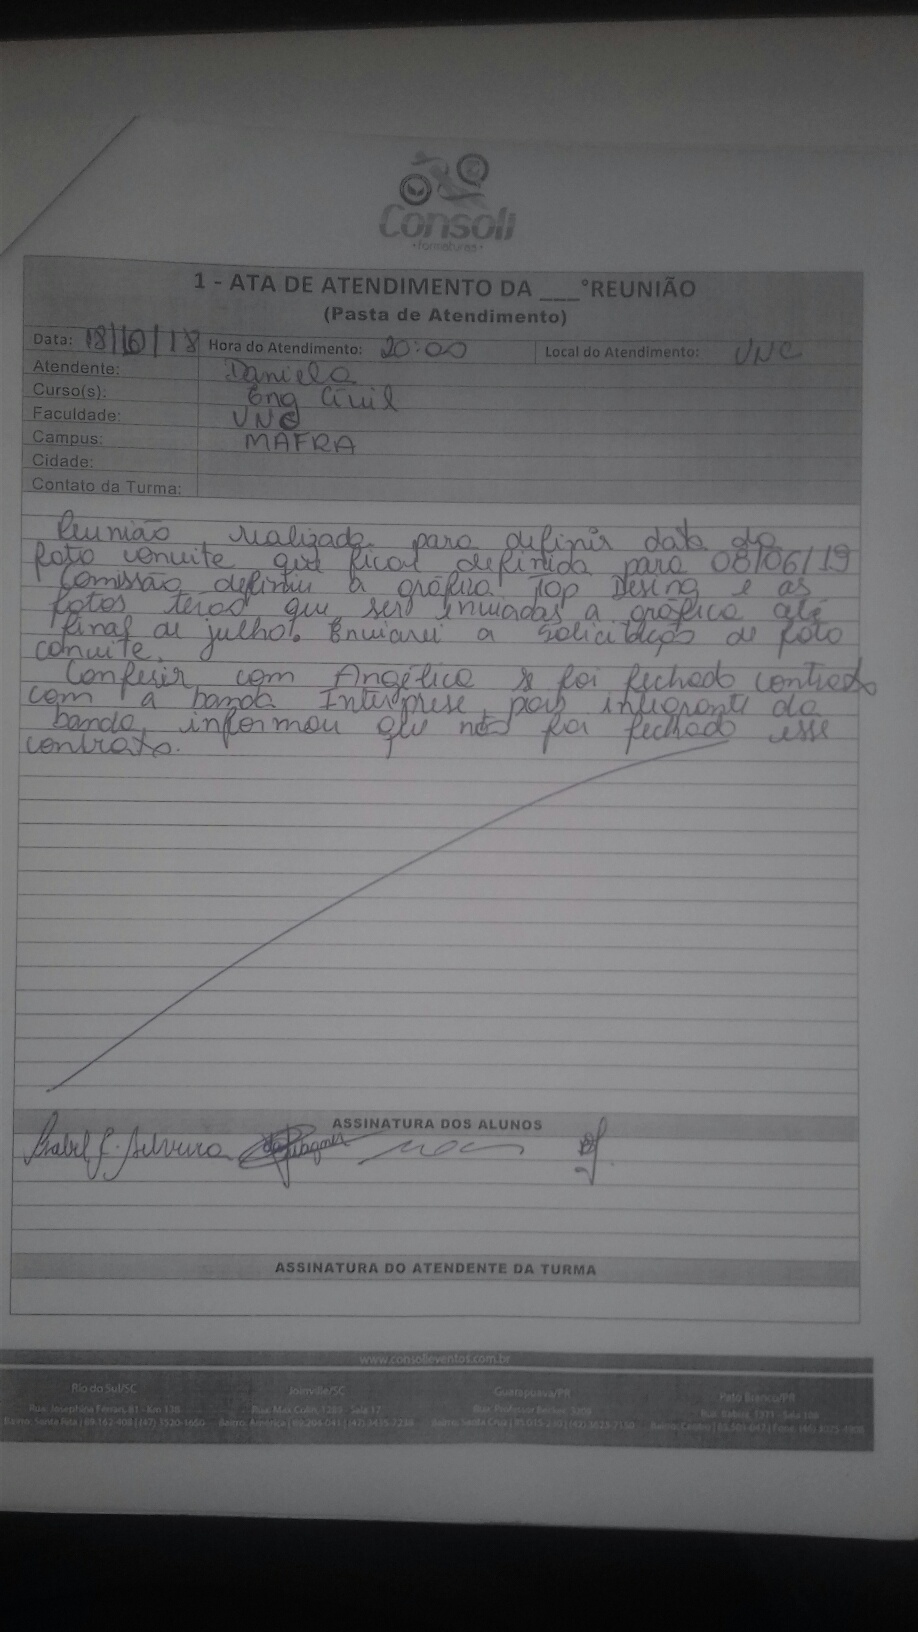 Consoli
•formaturas•
1 - ATA DE ATENDIMENTO DA ___°REUNIÃO
(Pasta de Atendimento)
Data: 18/10/18 Hora do Atendimento: 20:00 Local do Atendimento: UNC
Atendente: Daniela
Curso(s): Eng Civil
Faculdade: UNC
Campus: MAFRA
Cidade:
Contato da Turma:
Reunião realizada para definir data do
foto convite que ficou definida para 08/06/19
Comissão definiu a gráfica Top Desing e as
fotos terao que ser enviadas a gráfica até
final de julho. Enviarei a solicitação de foto
convite.
Conferir com Angélica se foi fechado contrato
com a banda Interprese, pois integrante da
banda informou que não foi fechado esse
contrato.
ASSINATURA DOS ALUNOS
Isabel F. Silveira
ASSINATURA DO ATENDENTE DA TURMA
www.consolieventos.com.br
Rio do Sul/SC Joinville/SC Guarapuava/PR Pato Branco/PR